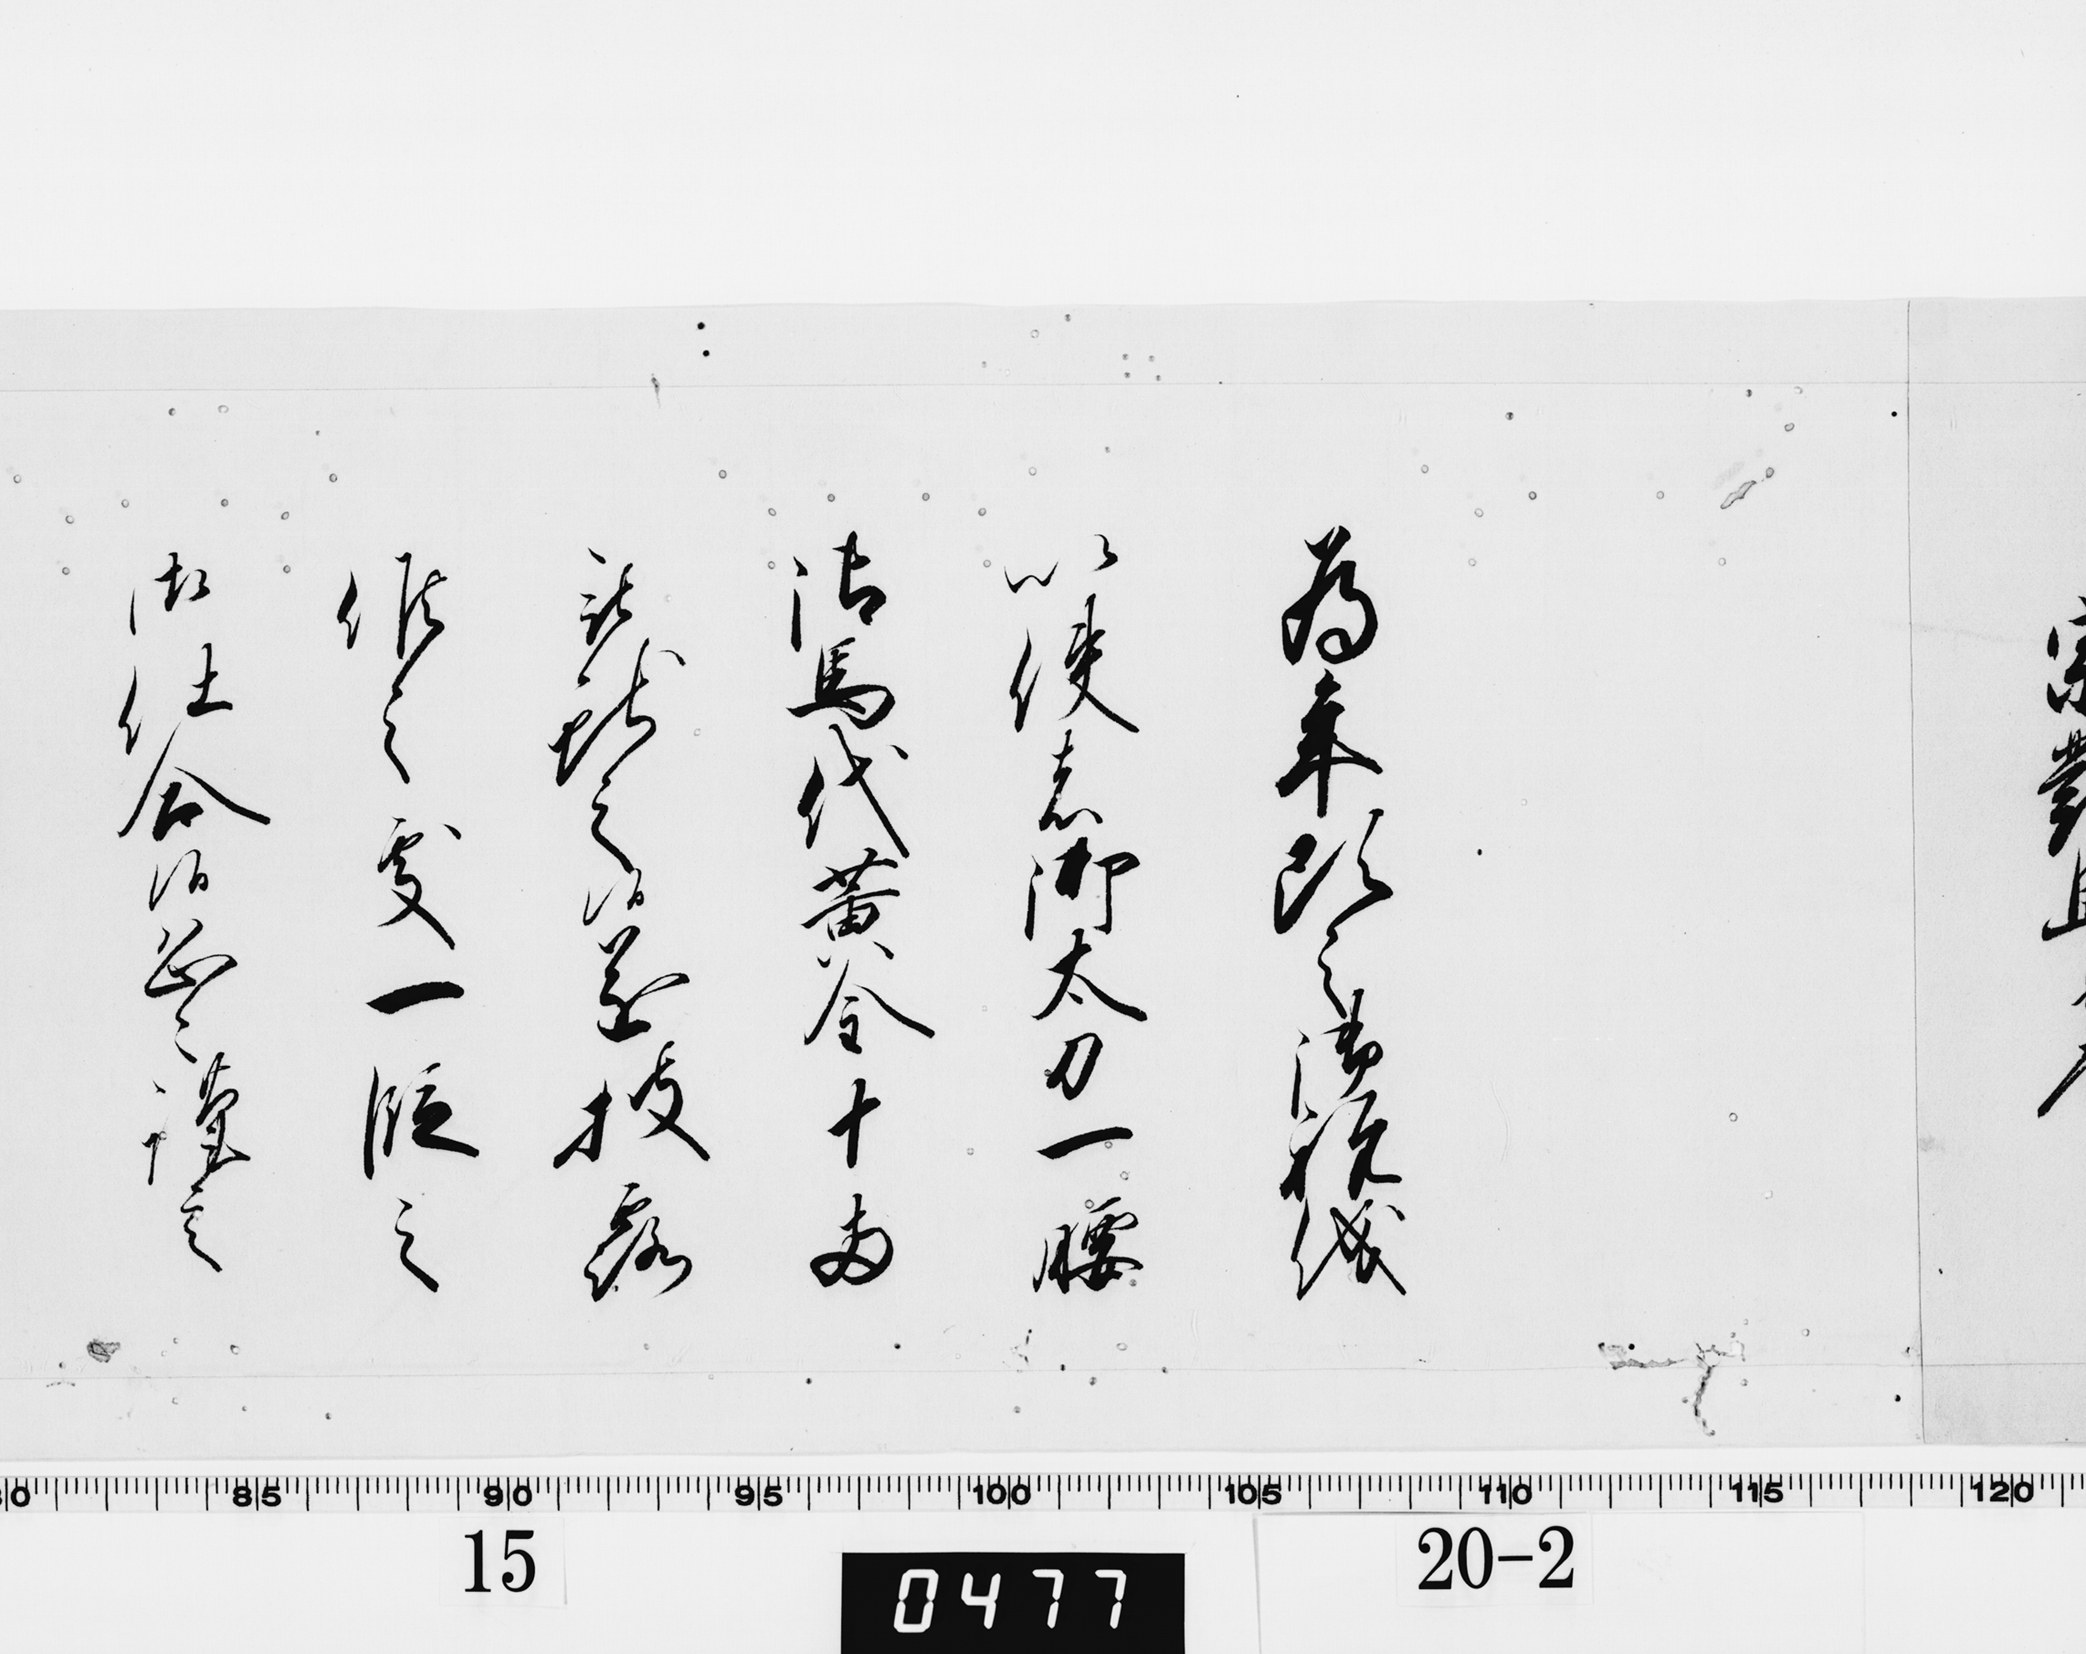 宗對
為年頭之御祝儀
以使者御太刀一腰
御馬代黄金十両
被献之候遂披露
候之處一段之
御仕合候恐々謹言
85 90 95 100 105 110 115 120
15
0477
20-2